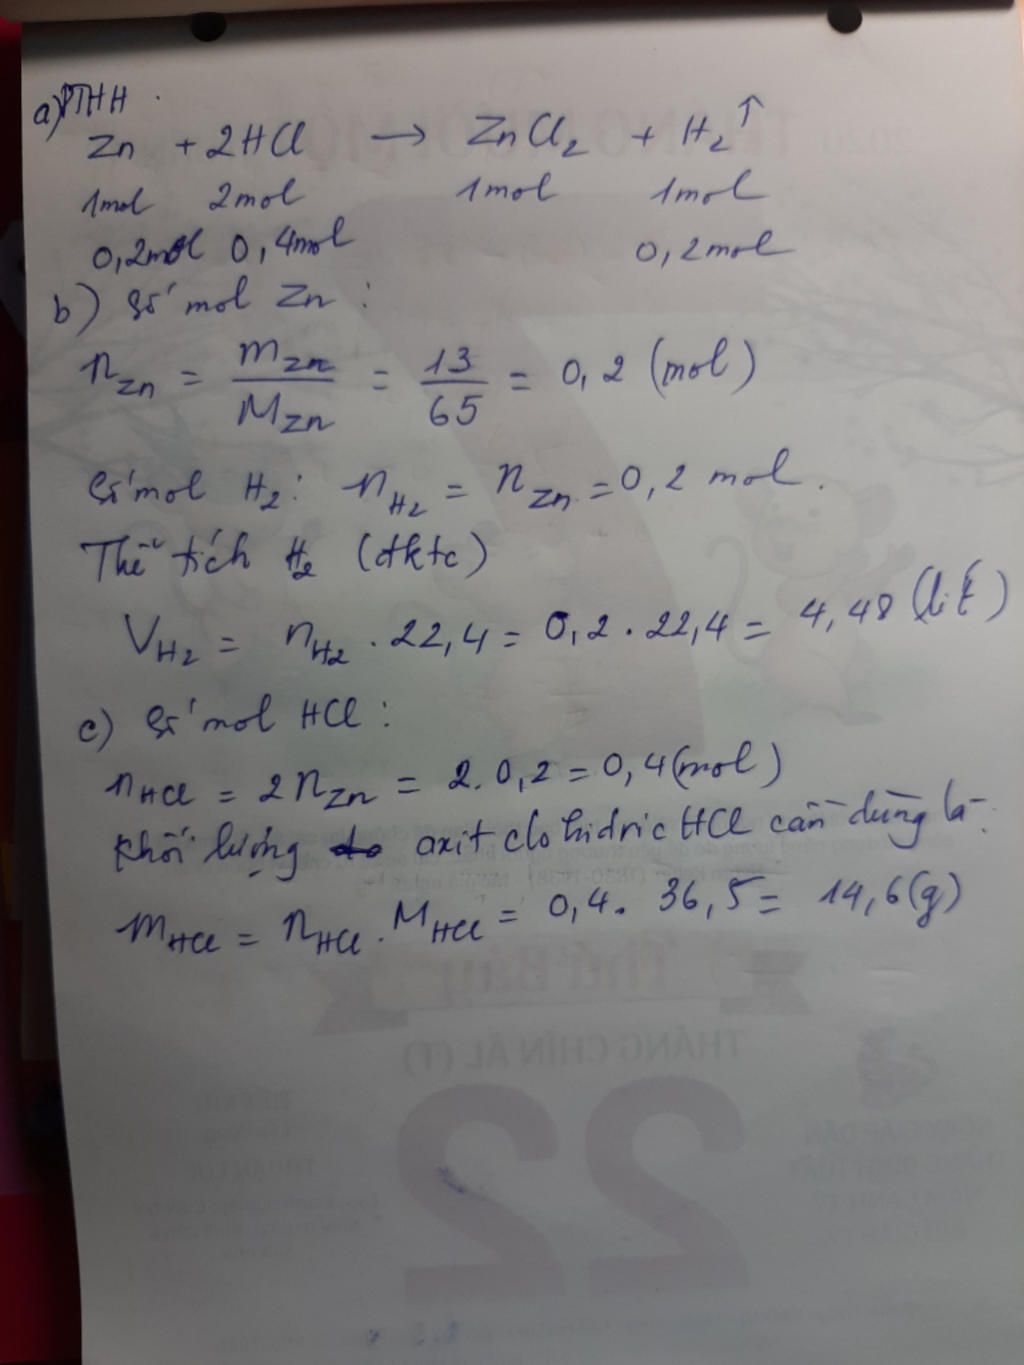 a) PTHH.
Zn + 2HCl → ZnCl₂ + H₂↑
1mol 2mol 1mol 1mol
0,2mol 0,4mol 0,2mol
b) Số mol Zn :
n_Zn = m_Zn / M_Zn = 13 / 65 = 0,2 (mol)
Số mol H₂ : n_H₂ = n_Zn = 0,2 mol.
Thể tích H₂ (đktc)
V_H₂ = n_H₂ . 22,4 = 0,2 . 22,4 = 4,48 (lít)
c) Số mol HCl :
n_HCl = 2n_Zn = 2. 0,2 = 0,4 (mol)
Khối lượng axit clohidric HCl cần dùng là :
m_HCl = n_HCl . M_HCl = 0,4. 36,5 = 14,6 (g)
2020
Thứ Bảy
THÁNG CHÍN ÂL (T)
22